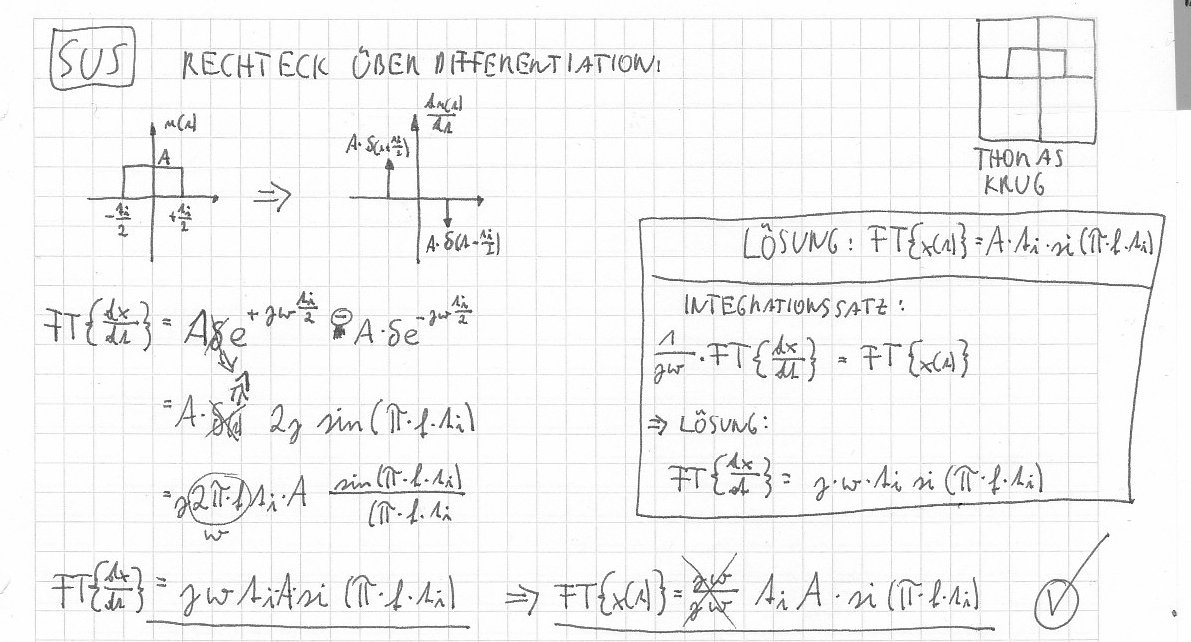 SUS RECHTECK ÜBER DIFFERENTIATION:
THOMAS KRUG
A
-ti/2 +ti/2
A·δ(t+ti/2)
A·δ(t-ti/2)
LÖSUNG: FT{x(t)}=A·ti·si(π·f·ti)
INTEGRATIONSSATZ:
1/jw·FT{dx/dt} = FT{x(t)}
⇒ LÖSUNG:
FT{dx/dt}= j·w·ti si(π·f·ti)
FT{dx/dt}= Aδe^+jw ti/2 ⊖ A·δe^-jw ti/2
= A· 2j sin(π·f·ti)
= j2π·f ti·A sin(π·f·ti)/(π·f·ti
w
FT{dx/dt}= jwtiA·si(π·f·ti) ⇒ FT{x(t)}= jw/jw ti A·si(π·f·ti)